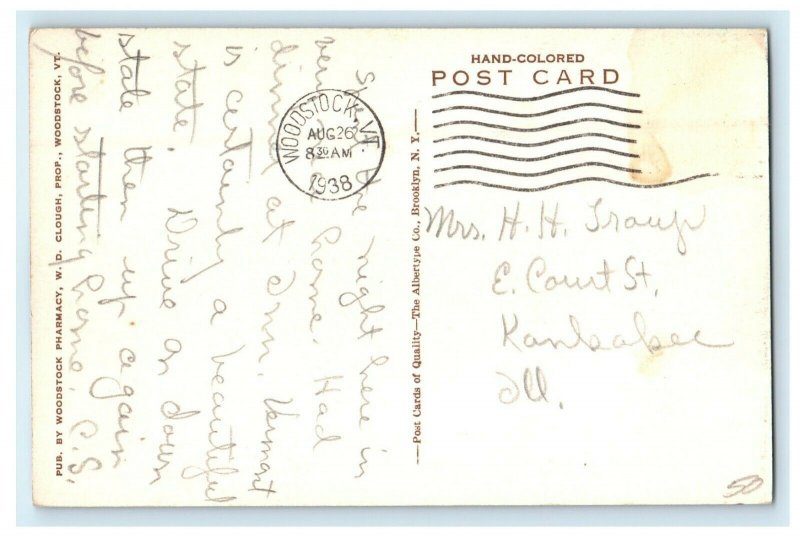 HAND-COLORED
POST CARD
WOODSTOCK, VT.
AUG 26
8 30 AM
1938
Spent the night here in
home. Had
dinner at Inn. Vermont
is certainly a beautiful
state. Drive on down
state then up again
before starting home. C.S.
Mrs. H. H. Troup
E. Court St,
Kankakee
Ill.
—Post Cards of Quality—The Albertype Co., Brooklyn, N. Y.—
PUB. BY WOODSTOCK PHARMACY, W. D. CLOUGH, PROP., WOODSTOCK, VT.
50